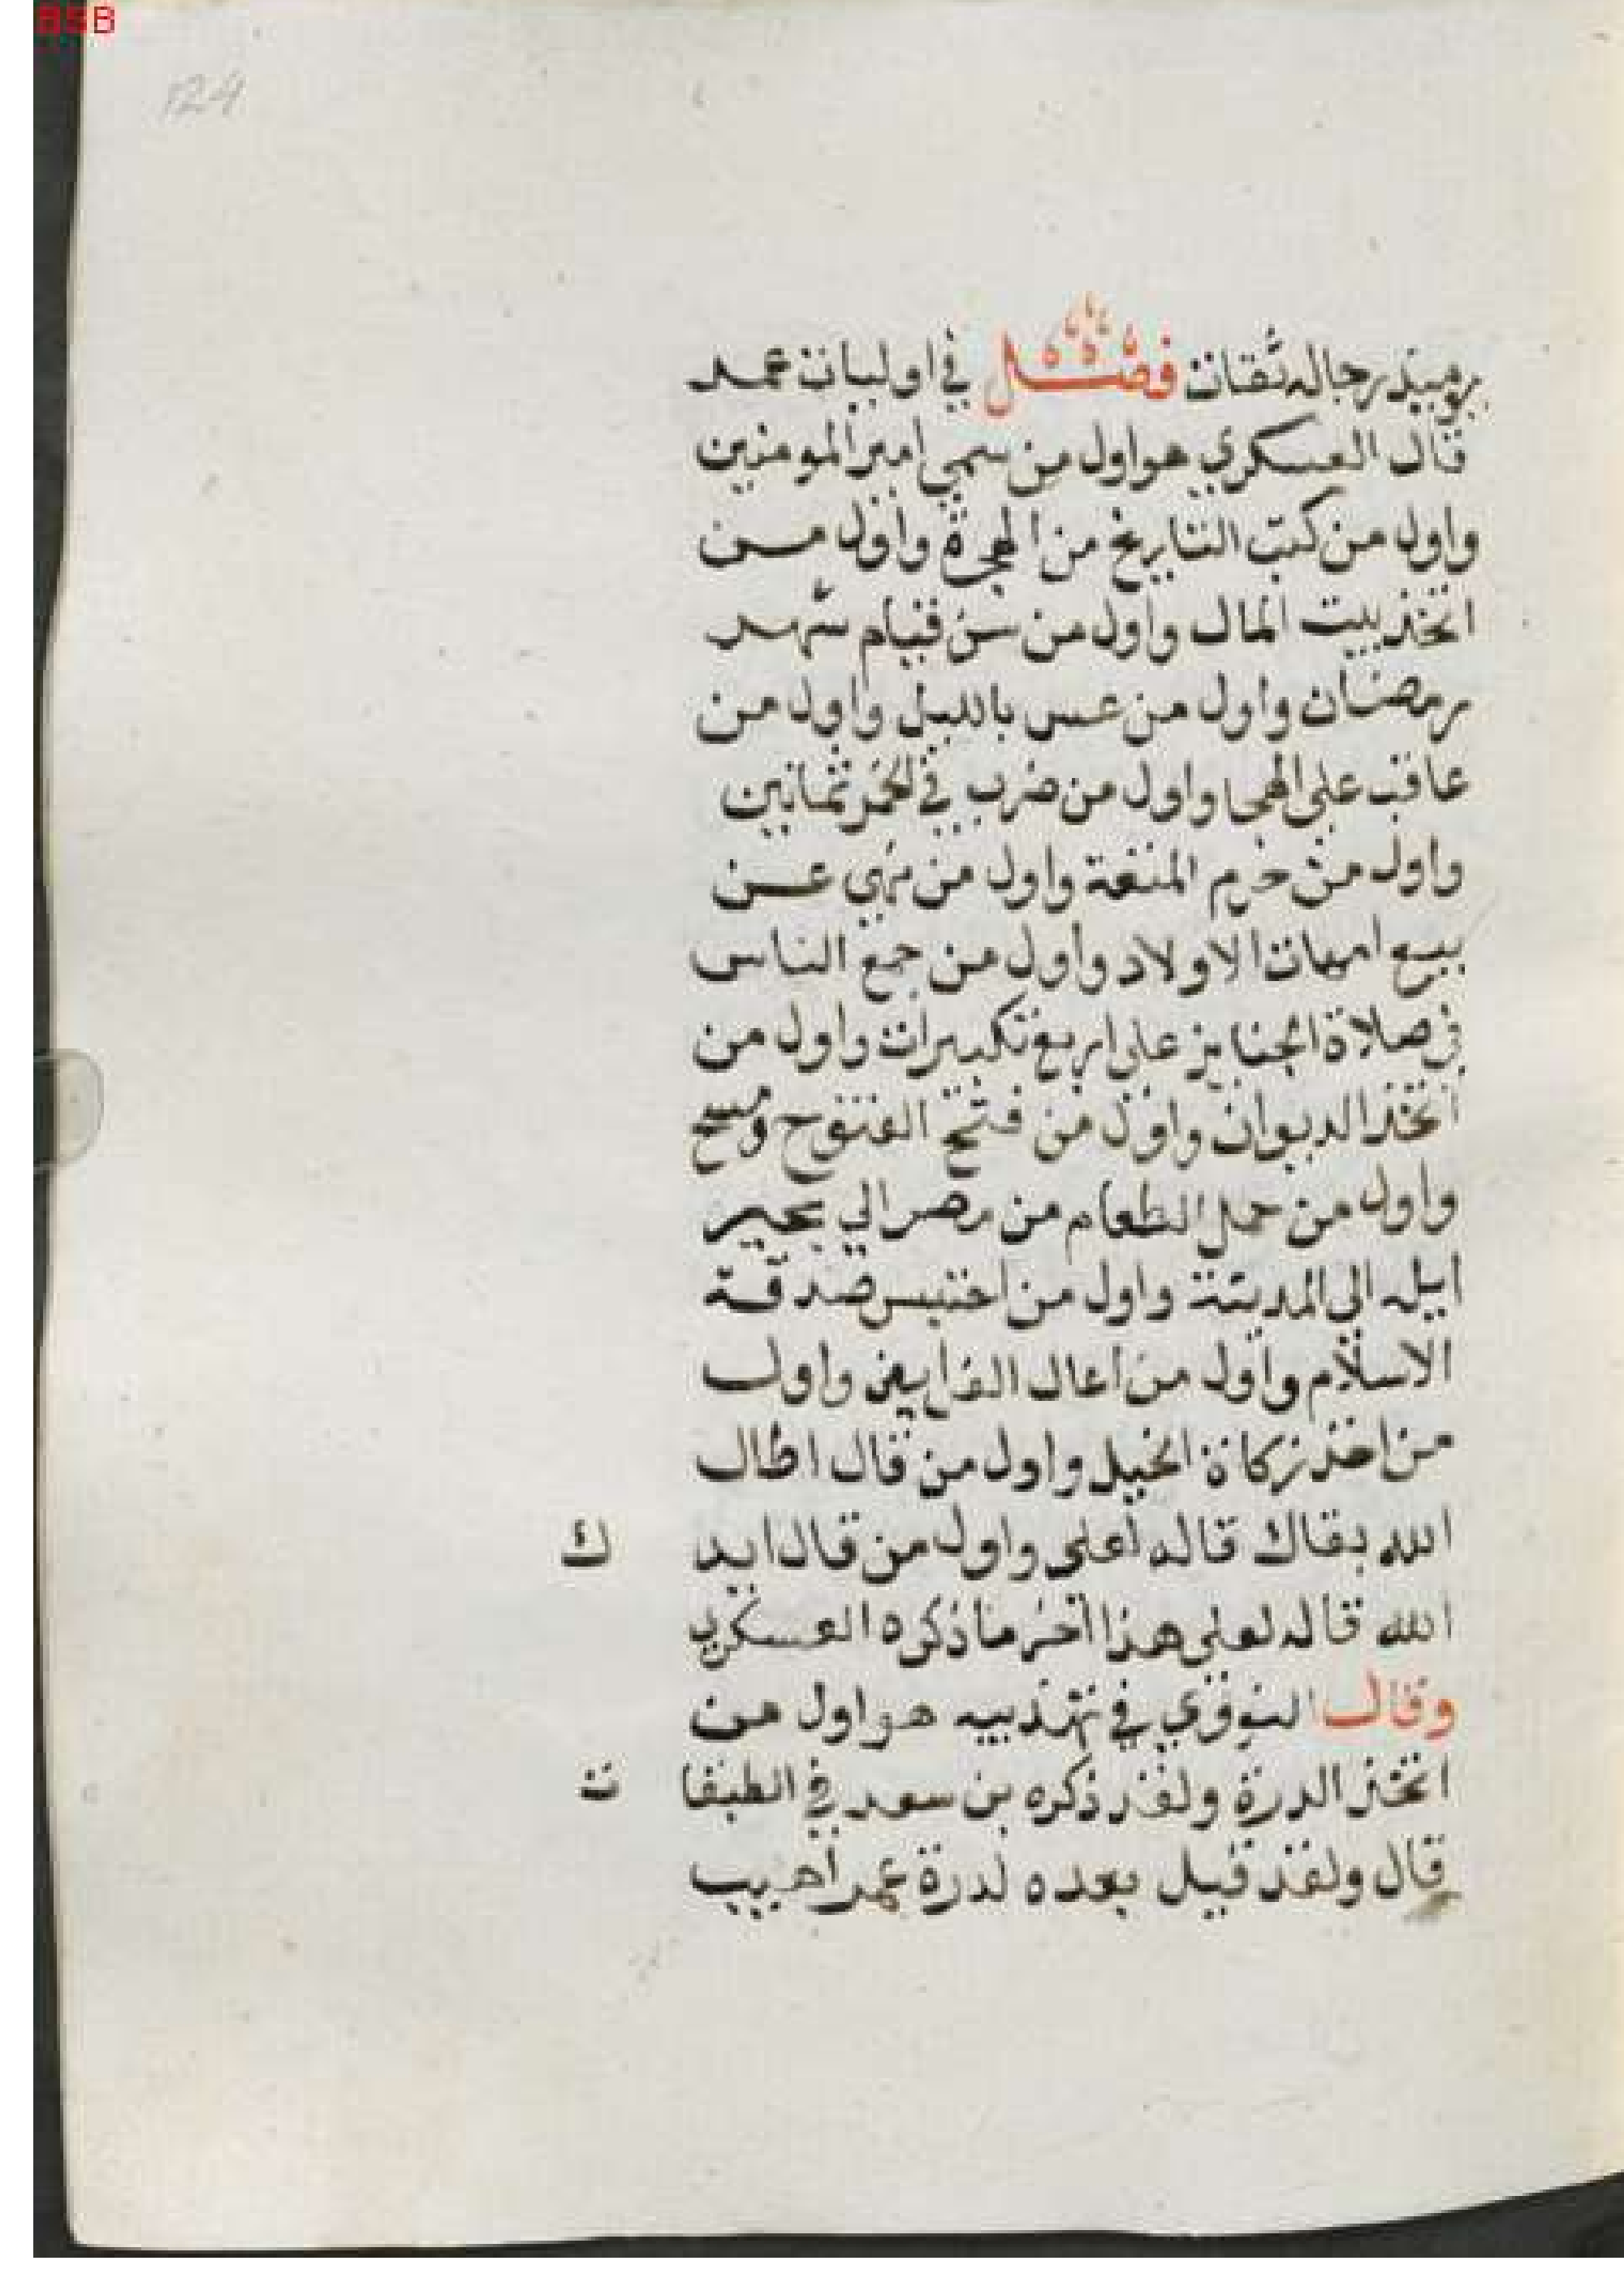 BSB
124
يوميذ رجاله ثقات فصل في اوليات عمر
قال العسكري هو اول من سمي امير المومنين
واول من كتب التاريخ من الهجرة واول من
اتخذ بيت المال واول من سن قيام شهر
رمضان واول من عس بالليل واول من
عاقب على الهجا واول من ضرب في الخمر ثمانين
واول من حرم المتعة واول من نهي عن
بيع امهات الاولاد واول من جمع الناس
في صلاة الجنايز على اربع تكبيرات واول من
اتخذ الديوان واول من فتح الفتوح ومسح
واول من حمل الطعام من مصر الي بحير
ايله الى المدينة واول من احتبس صدقة
الاسلام واول من اعال الفرايض واول
من اخذ زكاة الخيل واول من قال اطال
الله بقاك قاله لعلي واول من قال ايد ك
الله قاله لعلي هذا اخر ما ذكره العسكري
وقال النووي في تهذيبه هو اول من
اتخذ الدرة ولقد ذكره بن سعد في الطبقا ت
قال ولقد قيل بعده لدرة عمر اهيب